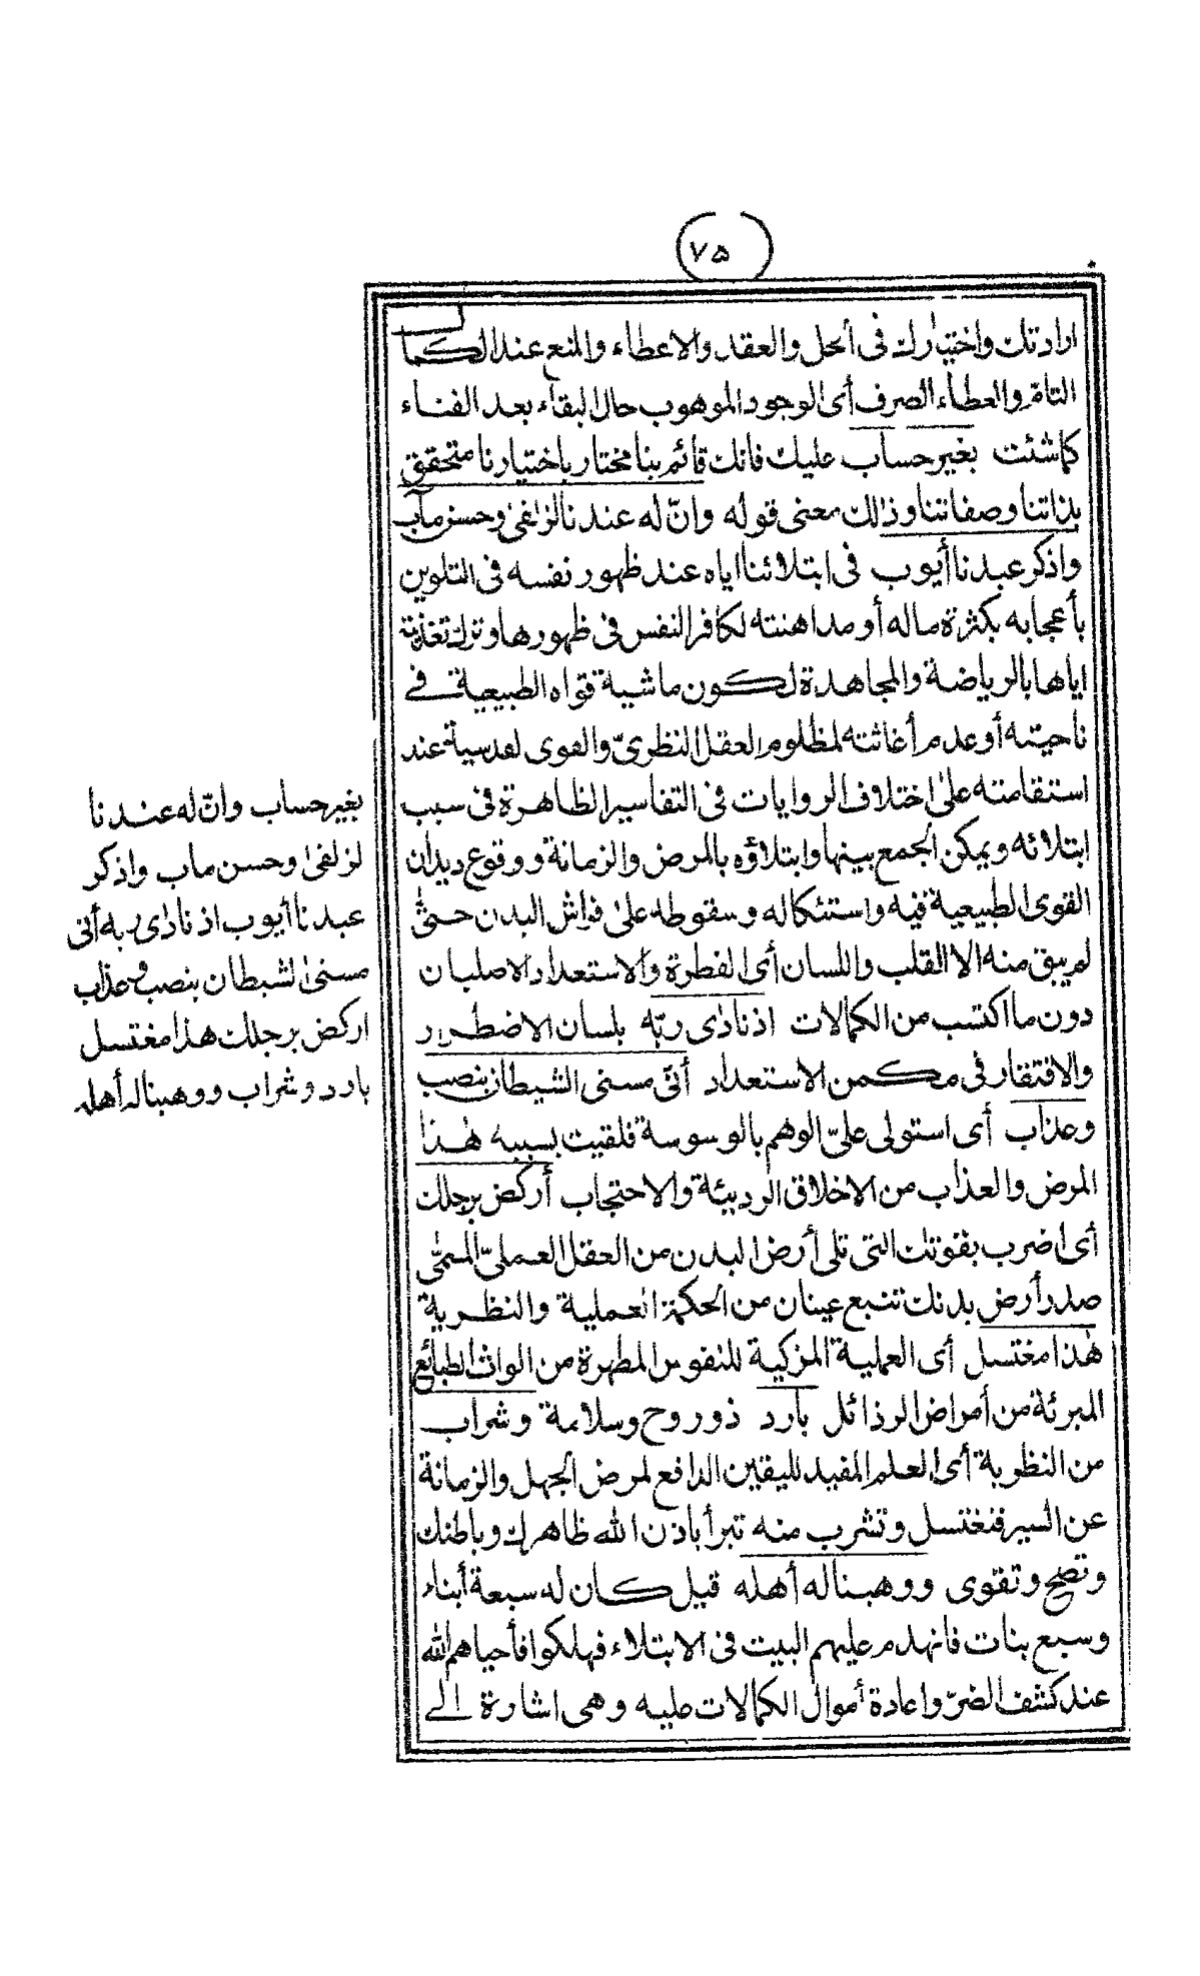 (٧٥)
ارادتك واختيارك فى الحل والعقد والاعطاء والمنع عند الكمال
التام والعطاء الصرف أى الوجود الموهوب حال البقاء بعد الفناء
كما شئت بغير حساب عليك فانك قائم بنا مختار باختيارنا متحقق
بذاتنا وصفاتنا وذلك معنى قوله وانّ له عندنا لزلفىٰ وحسن مآب
واذكر عبدنا أيوب فى ابتلائنا اياه عند ظهور نفسه فى التلوين
بأعجابه بكثرة ماله أو مداهنته لكافر النفس فى ظهورها وترك تغذية
اياها بالرياضة والمجاهدة لكون ماشية قواه الطبيعية فى
ناحيته أو عدم أغاثته لمظلوم العقل النظرىّ والقوى لقدسية عند
استقامته علىٰ اختلاف الروايات فى التفاسير الظاهرة فى سبب
ابتلائه ويمكن الجمع بينها وابتلاؤه بالمرض والزمانة ووقوع ديدان
القوى الطبيعية فيه واستئكاله وسقوطه علىٰ فراش البدن حتىٰ
لم يبق منه الا القلب واللسان أى الفطرة والاستعداد الاصليان
دون ما اكتسب من الكمالات اذ نادىٰ ربّه بلسان الاضطرار
والافتقار فى مكمن الاستعداد أنّى مسنى الشيطان بنصب
وعذاب أى استولى علىّ الوهم بالوسوسة فلقيت بسببه هٰذا
المرض والعذاب من الاخلاق الرديئة والاحتجاب أركض برجلك
أى اضرب بقوتك التى تلى أرض البدن من العقل العملىّ المسمّى
صدر أرض بدنك تنبع عينان من الحكمة العملية والنظرية
هٰذا مغتسل أى العملية المزكية للنفوس المطهرة من الواث الطبائع
المبرئة من أمراض الرذائل بارد ذو روح وسلامة وشراب
من النظرية أى العلم المفيد لليقين الدافع لمرض الجهل والزمانة
عن السير فتغتسل وتشرب منه تبرأ باذن الله ظاهرك وباطنك
وتصح وتقوى ووهبنا له أهله قيل كان له سبعة أبناء
وسبع بنات فانهدم عليهم البيت فى الابتلاء فهلكوا فأحياهم الله
عند كشف الضرّ واعادة أموال الكمالات عليه وهى اشارة الى
بغير حساب وانّ له عندنا
لزلفىٰ وحسن ماب واذكر
عبدنا أيوب اذ نادىٰ ربه أنى
مسنى الشيطان بنصب وعذاب
اركض برجلك هذا مغتسل
بارد وشراب ووهبنا له أهله